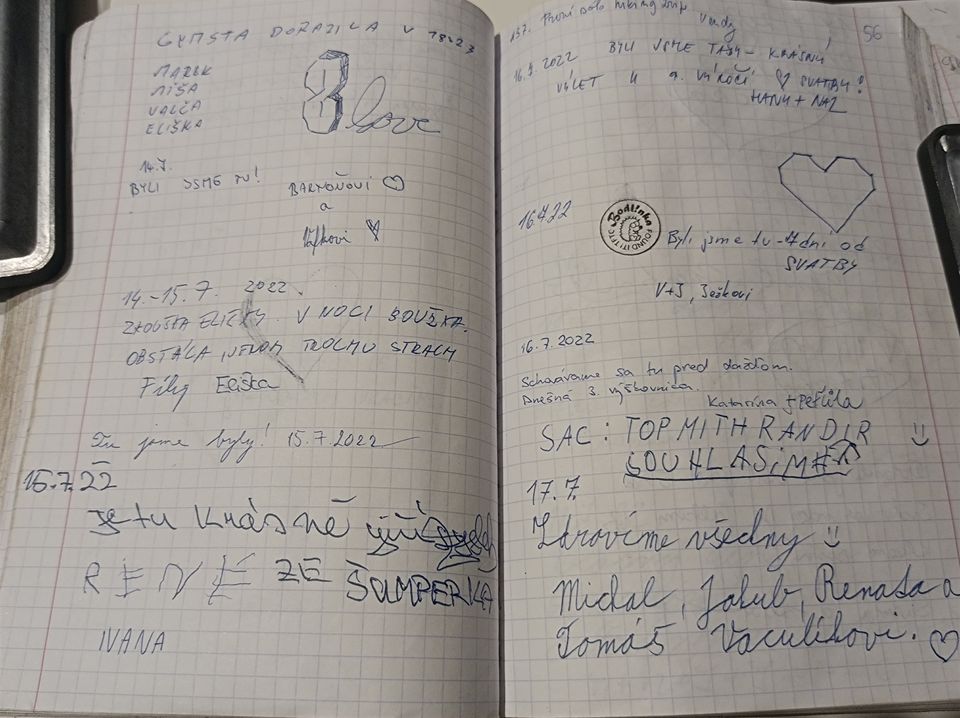 GYMSTA DORAZILA V 18:23
MAREK
MÍŠA
VALČA
ELIŠKA
love
14.7.
BYLI JSME TU!
BARMOŇOVI
a
14.-15.7. 2022
ZKOUŠKA ELIŠKY. V NOCI BOUŘKA.
OBSTÁLA, JENOM TROCHU STRACH
Eliška
Tu jsme byly! 15.7.2022
15.7.22
Je tu krásně
RENÉ ZE ŠUMPERKA
IVANA
56
První solo hiking trip
16.7.2022 BYLI JSME TADY - KRÁSNÝ
VÝLET K 9. VÝROČÍ SVATBY!
HANY + NAZ
16.7.22
Bodlinka
FOUND IT! TFTC
Byli jsme tu - 7 dní od
SVATBY
V+J, Ježkovi
16.7.2022
Schovávame sa tu pred dažďom.
Dnešná 3. výškovnica.
Katarína + Peťula
SAC: TOP MITHRANDIR
SOUHLASÍME
17.7.
Zdravíme všechny
Michal, Jakub, Renata a
Tomáš Vaculíkovi.